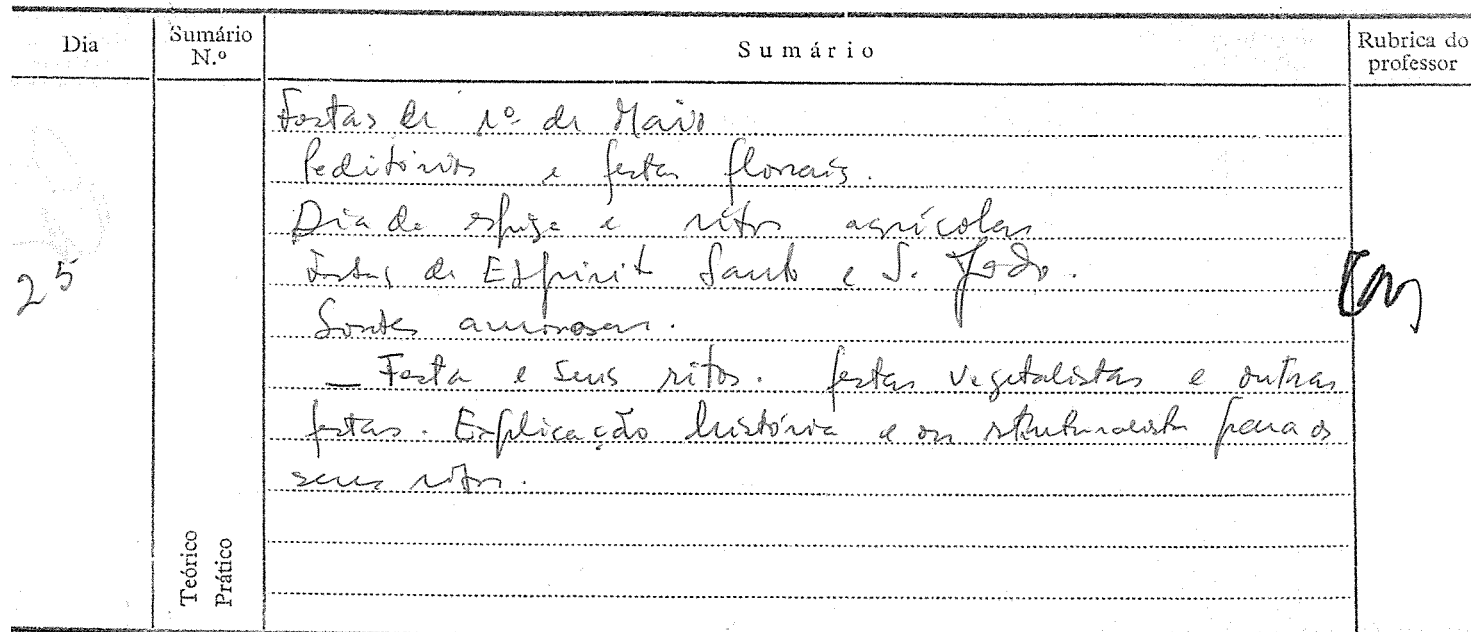 Dia
Sumário N.º
Sumário
Rubrica do professor
25
Festas de 1º de Maio
Peditórios e festas florais.
Dia da espiga e ritos agrícolas
Festas de Espirito Santo e S. João.
Sortes amorosas.
— Festa e seus ritos. festas vegetalistas e outras
festas. Explicação história e ou estruturalista para os
seus ritos.
Teórico
Prático